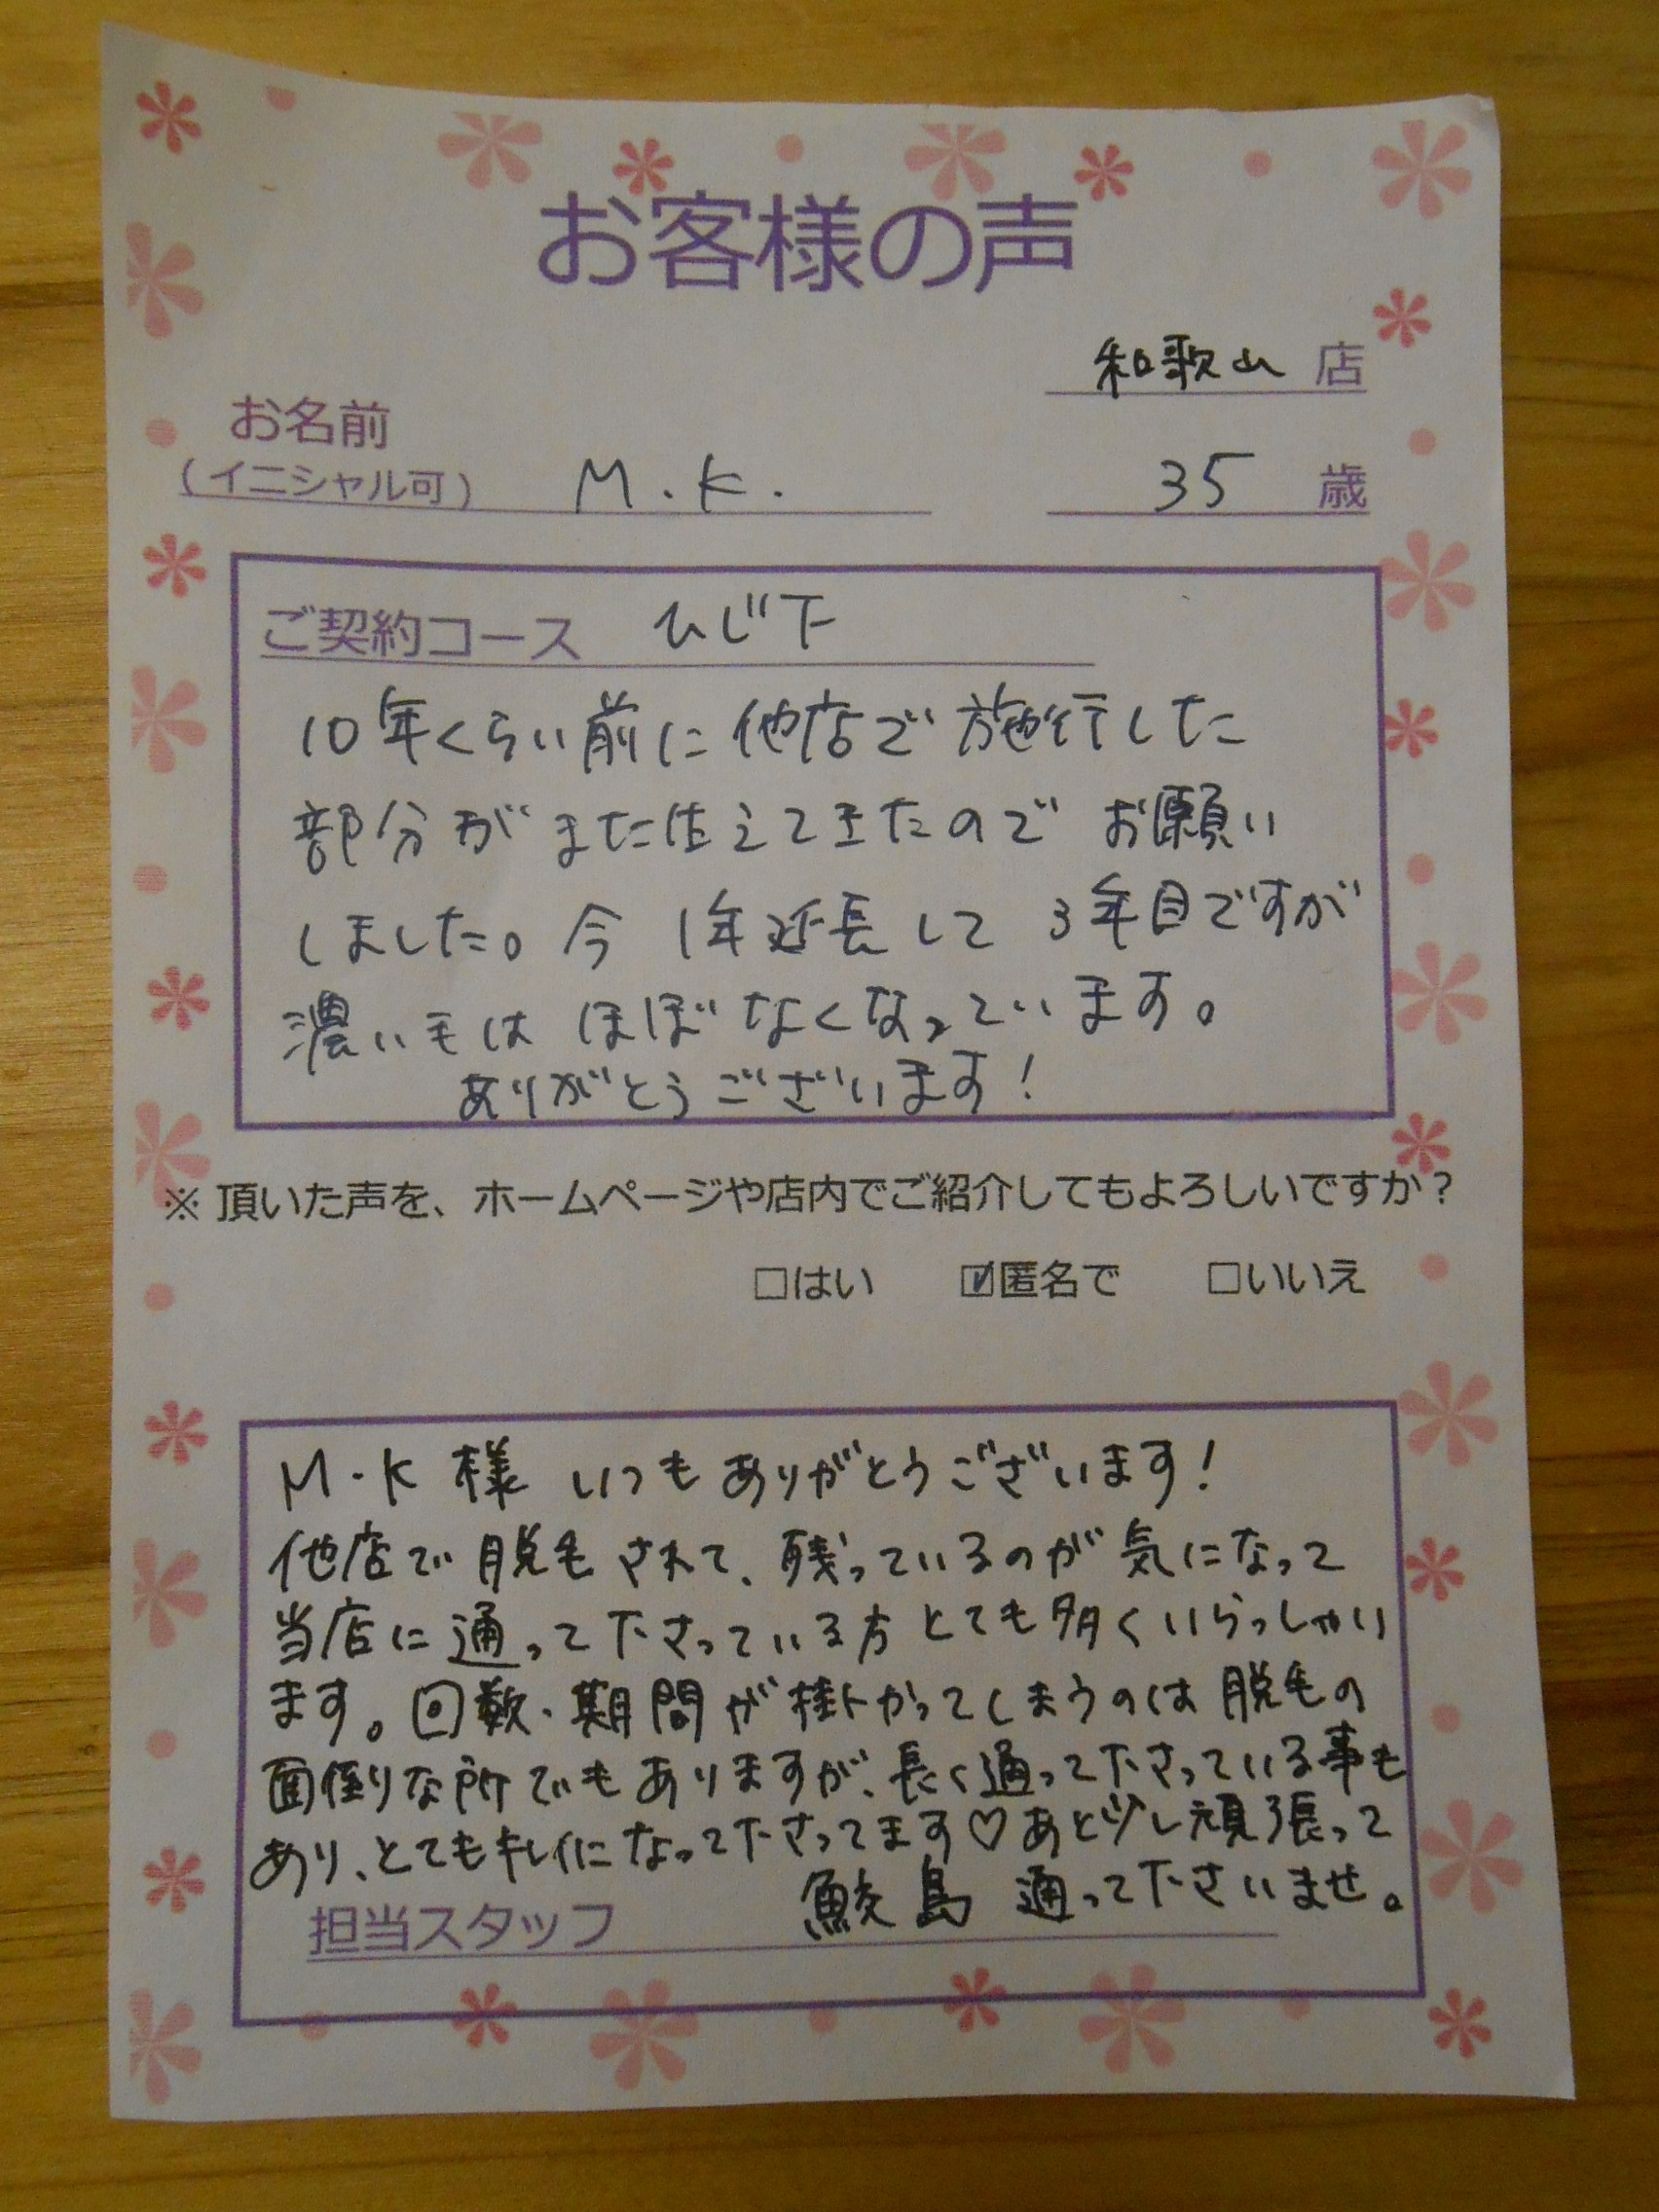 お客様の声
和歌山 店
お名前
(イニシャル可) M.K. 35 歳
ご契約コース ひじ下
10年くらい前に他店で施行した
部分がまた生えてきたのでお願い
しました。今 1年延長して 3年目ですが
濃い毛は ほぼなくなっています。
ありがとうございます!
※頂いた声を、ホームページや店内でご紹介してもよろしいですか?
□はい ☑匿名で □いいえ
M・K 様 いつもありがとうございます!
他店で脱毛されて、残っているのが気になって
当店に通って下さっている方とても多くいらっしゃい
ます。回数・期間が掛かってしまうのは脱毛の
面倒な所でもありますが、長く通って下さっている事も
あり、とてもキレイになって下さってます♡あと少し頑張って
通って下さいませ。
担当スタッフ 鮫島